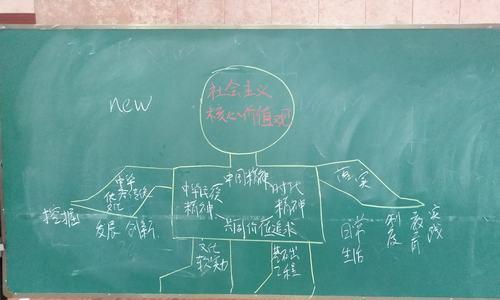 new
社会主义
核心价值观
中华
优秀传统
文化
挖掘
发展 创新
中国精神
中华民族
精神
时代
精神
共同价值追求
落实
日常
生活
制度
教育
实践
文化
软实力
基础
工程